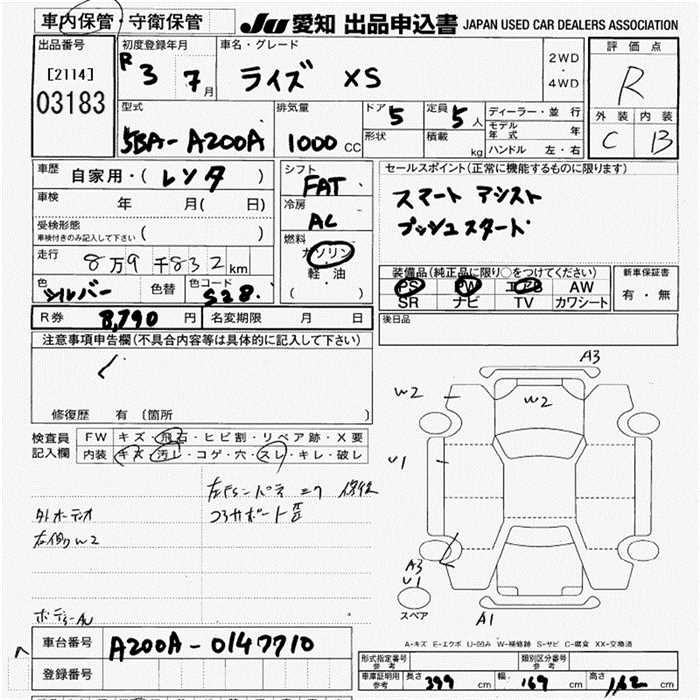 車内保管・守衛保管 JU 愛知 出品申込書 JAPAN USED CAR DEALERS ASSOCIATION
出品番号 初度登録年月 車名・グレード 2WD・4WD 評価点
[2114] R 3 7月 ライズ XS R
03183
型式 排気量 ドア 5 定員 5人 ディーラー・並行 外装 内装
5BA-A200A 1000 CC 形状 積載 kg モデル年式 年 C B
ハンドル 左・右
車歴 自家用・( レンタ ) シフト FAT セールスポイント(正常に機能するものに限ります)
車検 年 月( 日) 冷房 AC スマートアシスト
受検形態 プッシュスタート
車検付きのみ記入して下さい ( )
走行 8万9千832km 燃料 ガソリン
軽・油
( )
装備品(純正品に限り○をつけてください) 新車保証書
色 シルバー 色替 色コード S28 PS PW エアB AW 有・無
SR ナビ TV カワシート
R券 8,790円 名変期限 月 日 後日品
注意事項申告欄(不具合内容等は具体的に記入して下さい)
修復歴 有 (箇所
検査員 FW キズ・飛石・ヒビ割・リペア跡・X要
記入欄 内装 キズ・汚レ・コゲ・穴・スレ・キレ・破レ
外オーディオ
右側W2
A3
W2
W2
U1
A3
U1
スペア
A1
A-キズ E-エクボ U-凹み W-補修跡 S-サビ C-腐食 XX-交換済
車台番号 A200A-0147710
登録番号
形式指定番号 参考 類別区分番号 参考
車庫証明用 参考 長さ 399 cm 幅 169 cm 高さ 162 cm